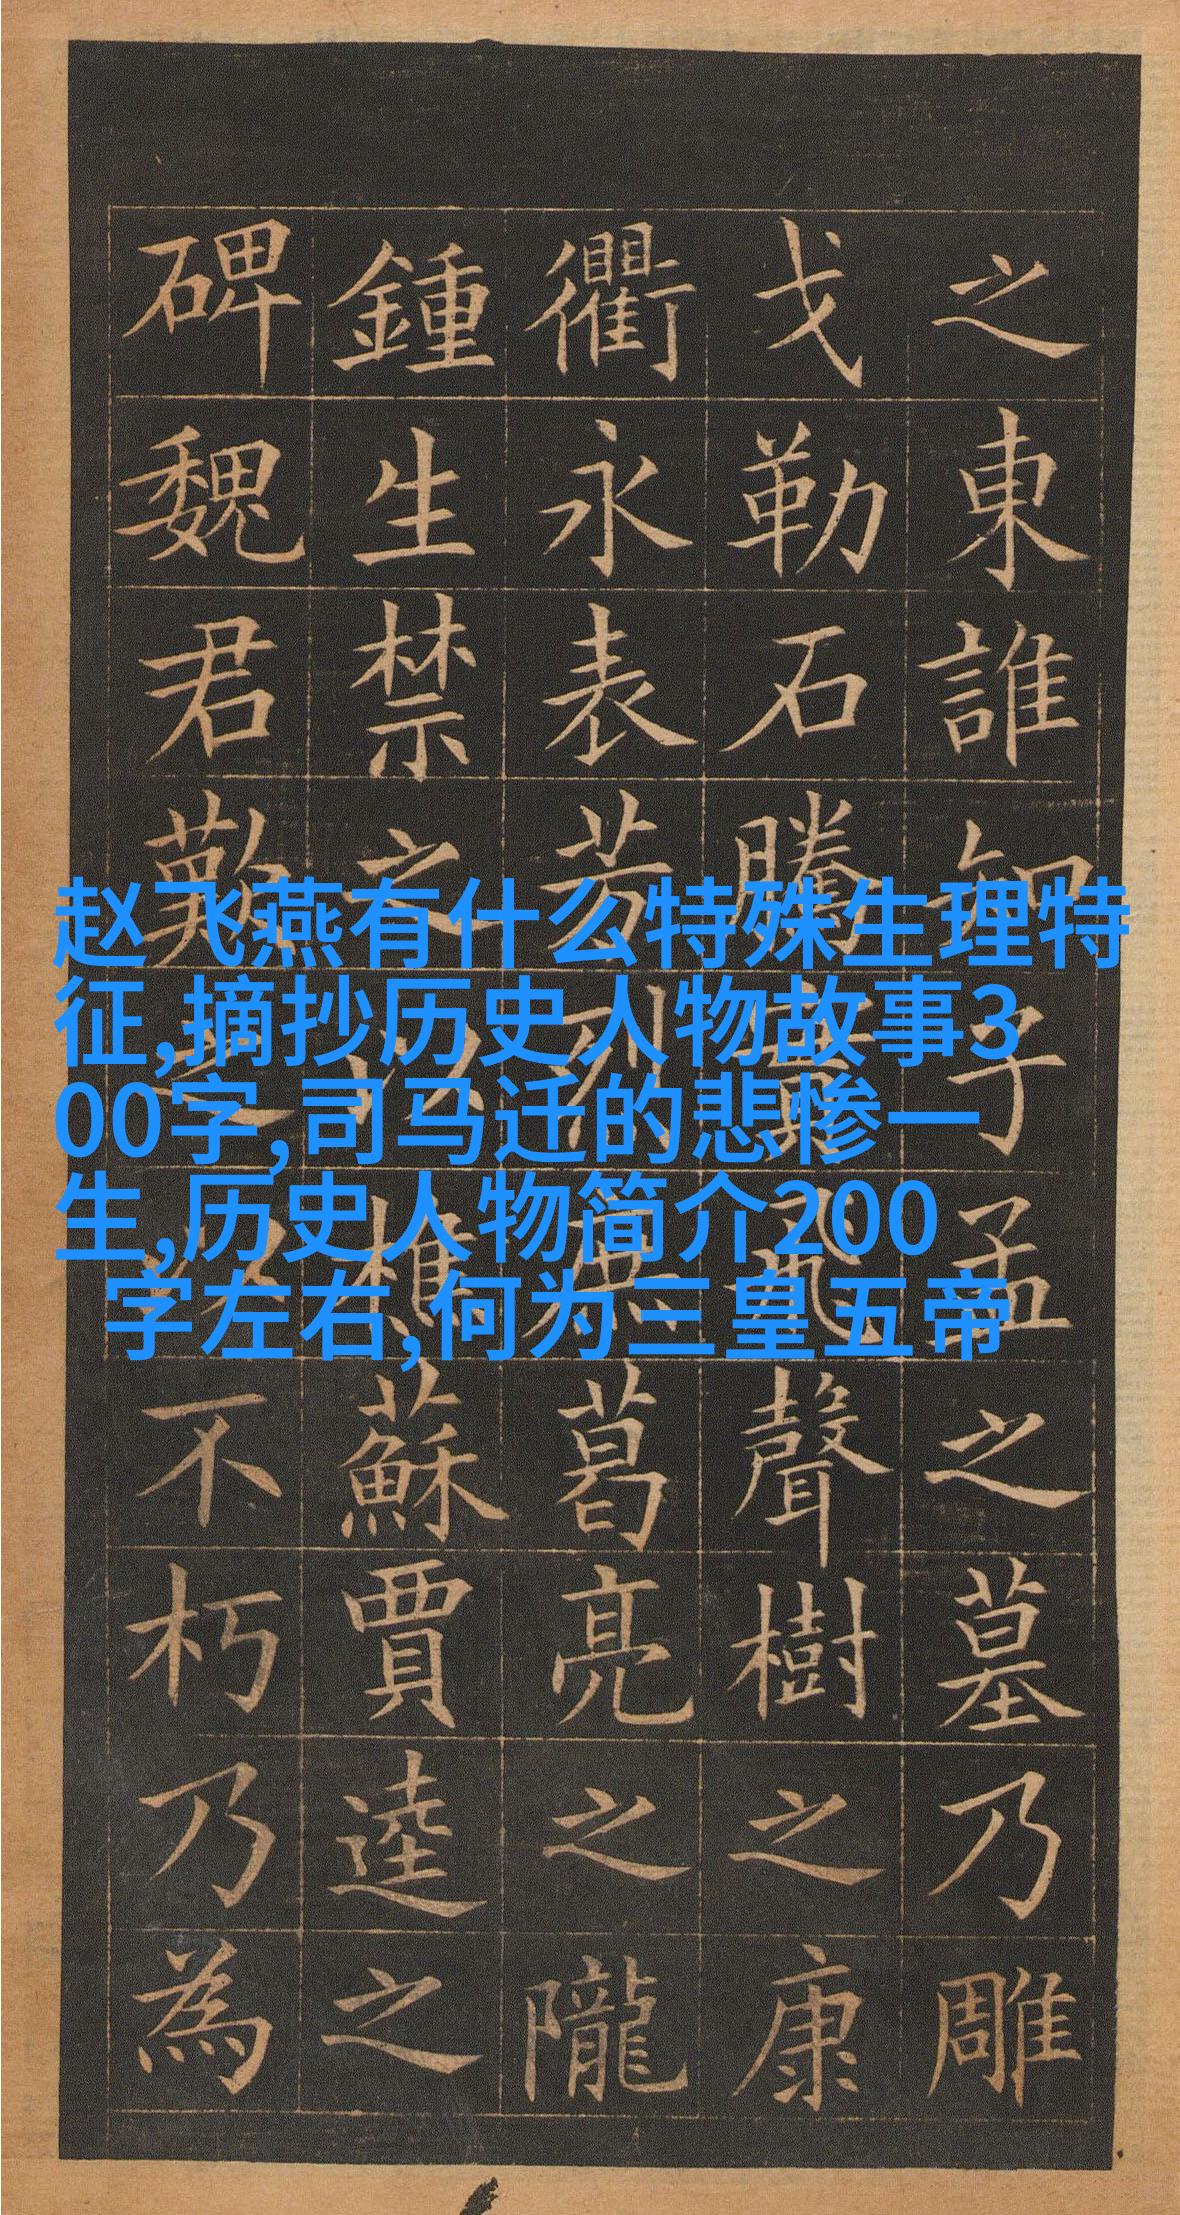 赵飞燕有什么特殊生理特
征,摘抄历史人物故事3
00字,司马迁的悲惨一
生,历史人物简介200
字左右,何为三皇五帝
之東誰知子孟之墓乃雕
戈勒石騰實飛聲樹之康
衢永表芳列無葛亮之隴
鍾生禁之以樵蘇賈逵之
碑魏君歎之以不朽乃為